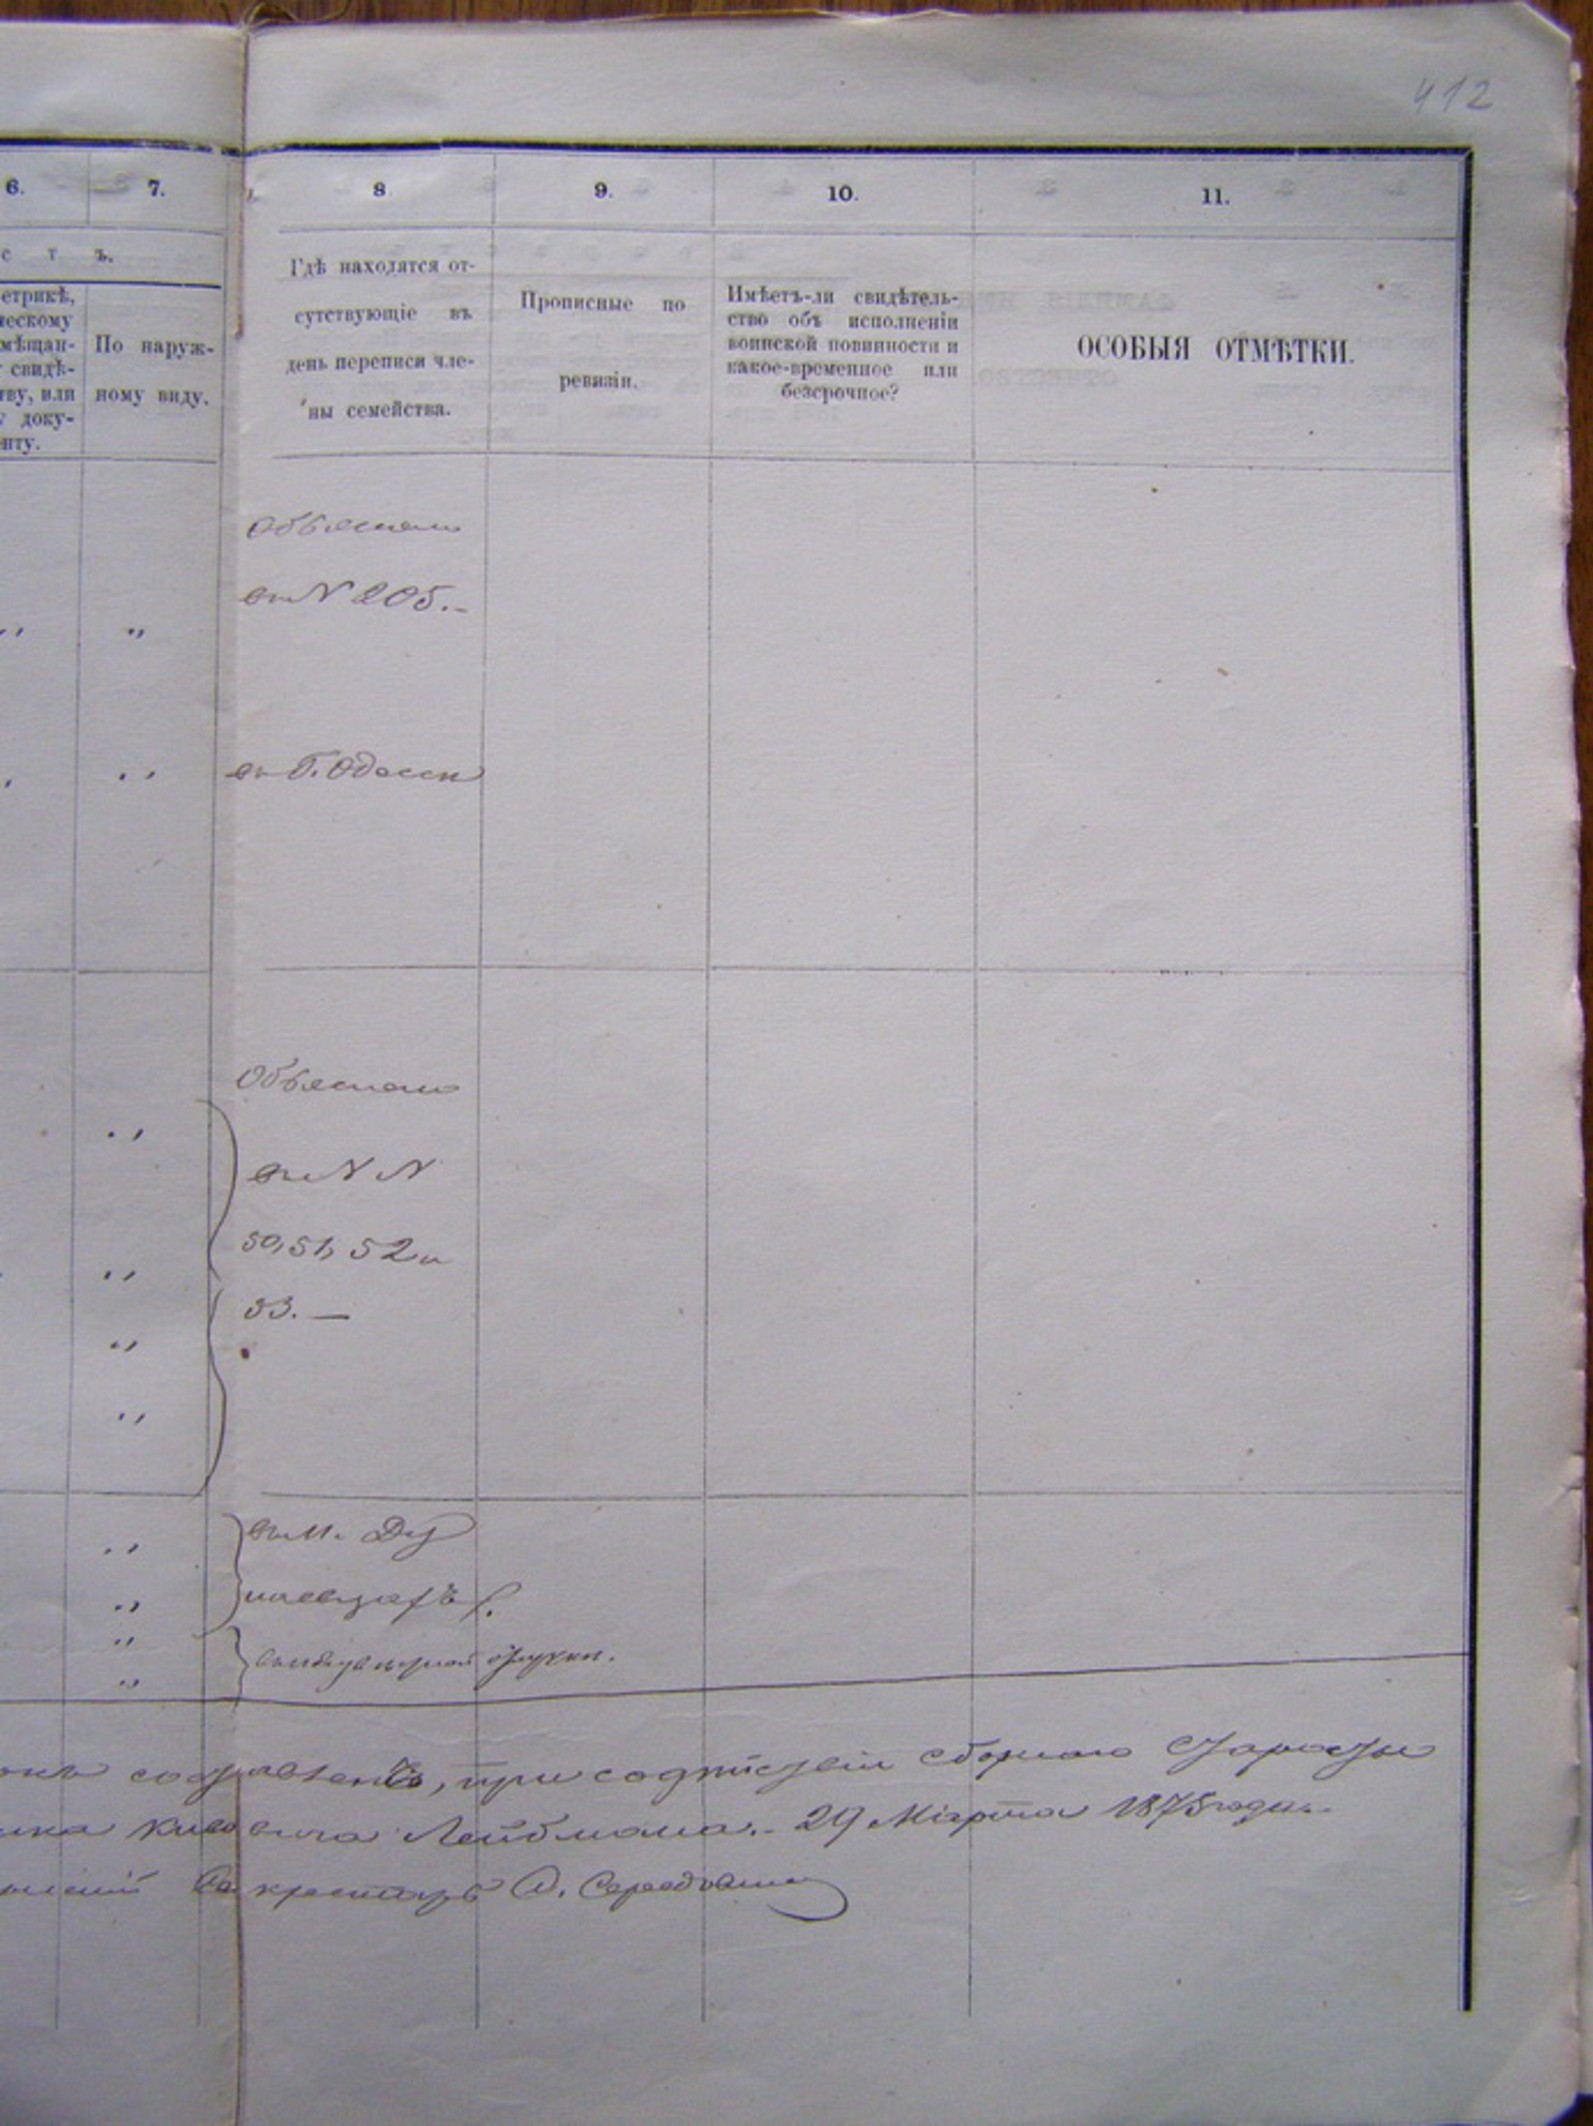 412
6.
7.
8
9.
10.
11.
с т ъ.
етрикѣ,
ческому
мѣщан-
свидѣ-
тву, или
у доку-
нту.
По наруж-
ному виду.
Гдѣ находятся от-
сутствующіе въ
день переписи чле-
ны семейства.
Прописные по
ревизіи.
Имѣетъ-ли свидѣтель-
ство объ исполненіи
воинской повинности и
какое-временное или
безсрочное?
ОСОБЫЯ ОТМѢТКИ.
Объяснено
въ N 205.-
въ Г. Одессѣ
Объяснено
въ N N
50, 51, 52 и
53. —
въ м. Ду
составленъ, при содѣйствіи сборнаго Старосты
Лейбмана.- 29 Марта 1875 года.
Секретарь